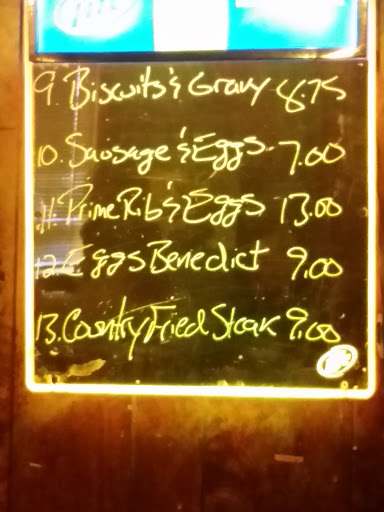 9. Biscuits & Gravy 8.75
10. Sausage & Eggs 7.00
11. Prime Rib & Eggs 13.00
12. Eggs Benedict 9.00
13. Country Fried Steak 9.00